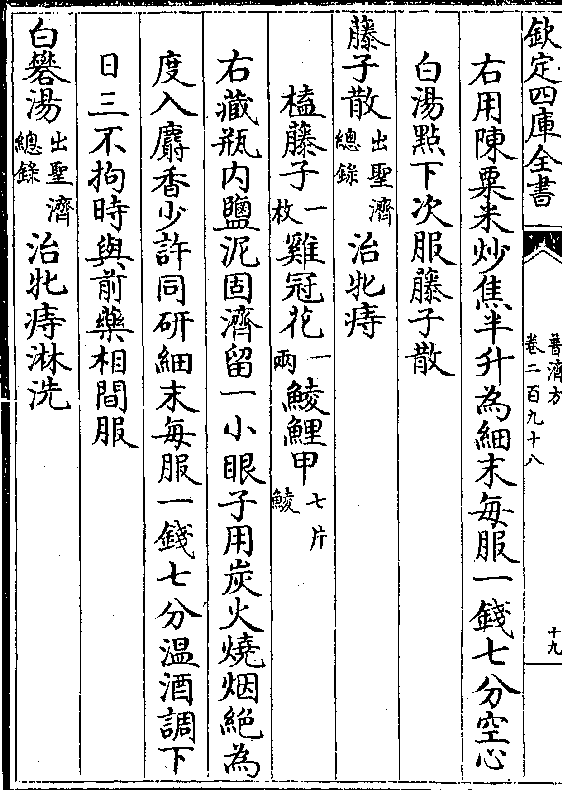 欽定四庫全書
普濟方
卷二百九十八
十九
右用陳粟米炒焦半升為細末每服一錢七分空心
白湯點下次服藤子散
藤子散出聖濟總錄治牝痔
榼藤子一枚雞冠花一兩鯪鯉甲七片鯪
右藏瓶内鹽泥固濟留一小眼子用炭火燒烟絶為
度入麝香少許同研細末每服一錢七分温酒調下
日三不拘時與前藥相間服
白礬湯出聖濟總錄治牝痔淋洗